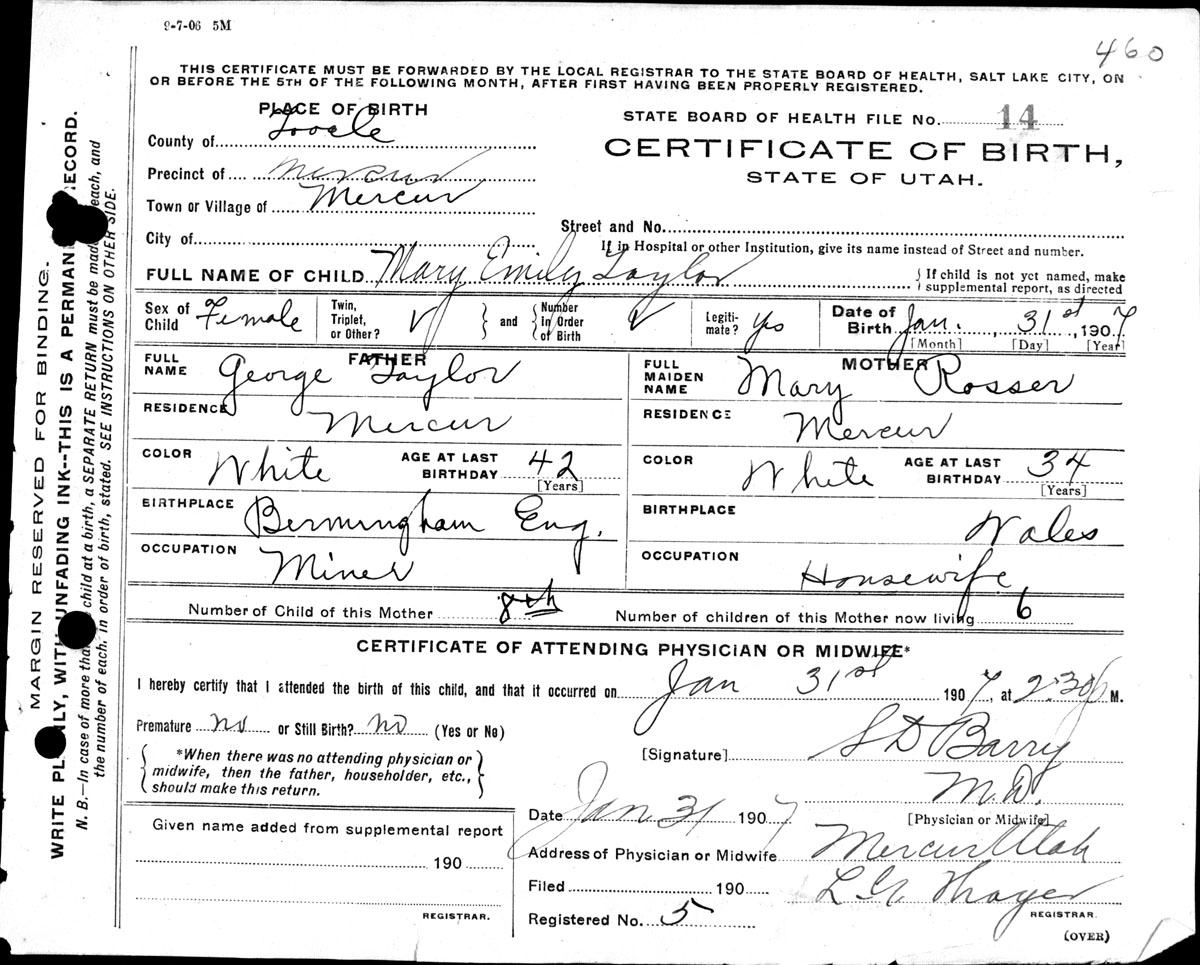 9-7-06 5M
460
THIS CERTIFICATE MUST BE FORWARDED BY THE LOCAL REGISTRAR TO THE STATE BOARD OF HEALTH, SALT LAKE CITY, ON
OR BEFORE THE 5TH OF THE FOLLOWING MONTH, AFTER FIRST HAVING BEEN PROPERLY REGISTERED.
PLACE OF BIRTH
STATE BOARD OF HEALTH FILE No. 14
County of Tooele
CERTIFICATE OF BIRTH,
STATE OF UTAH.
Precinct of Mercur
Town or Village of Mercur
Street and No.
City of
If in Hospital or other Institution, give its name instead of Street and number.
FULL NAME OF CHILD Mary Emily Taylor
{If child is not yet named, make
supplemental report, as directed
Sex of Child Female Twin, Triplet, or Other? √ } and { Number in Order of Birth √ Legiti-mate? Yes Date of Birth Jan. 31st, 1907
[Month] [Day] [Year]
FATHER
MOTHER
FULL NAME George Taylor
FULL MAIDEN NAME Mary Rosser
RESIDENCE Mercur
RESIDENCE Mercur
COLOR White AGE AT LAST BIRTHDAY 42 [Years]
COLOR White AGE AT LAST BIRTHDAY 34 [Years]
BIRTHPLACE Bermingham Eng.
BIRTHPLACE Wales
OCCUPATION Miner
OCCUPATION Housewife
Number of Child of this Mother 8th Number of children of this Mother now living 6
CERTIFICATE OF ATTENDING PHYSICIAN OR MIDWIFE*
I hereby certify that I attended the birth of this child, and that it occurred on Jan 31st 1907, at 2:30 p M.
Premature no or Still Birth? no (Yes or No)
[Signature] S D Barry
M.D.
[Physician or Midwife]
{*When there was no attending physician or
midwife, then the father, householder, etc.,
should make this return.}
Date Jan 31 1907
Given name added from supplemental report
190
REGISTRAR.
Address of Physician or Midwife Mercur Utah
Filed 190
L G Thayer
REGISTRAR.
Registered No. 5
(OVER)
MARGIN RESERVED FOR BINDING.
WRITE PLAINLY, WITH UNFADING INK--THIS IS A PERMANENT RECORD.
N. B.—In case of more than one child at a birth, a SEPARATE RETURN must be made for each, and
the number of each, in order of birth, stated. SEE INSTRUCTIONS ON OTHER SIDE.